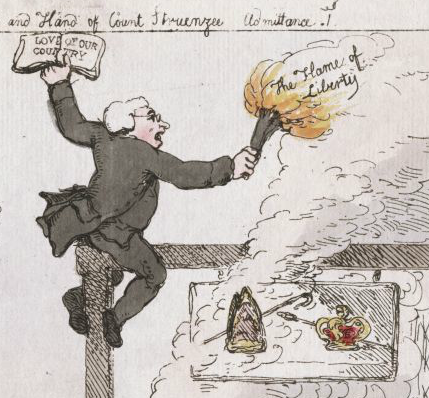 and Hand of Count Struenzee Admittance .1.
LOVE OF OUR
COUNTRY
The Flame of
Liberty